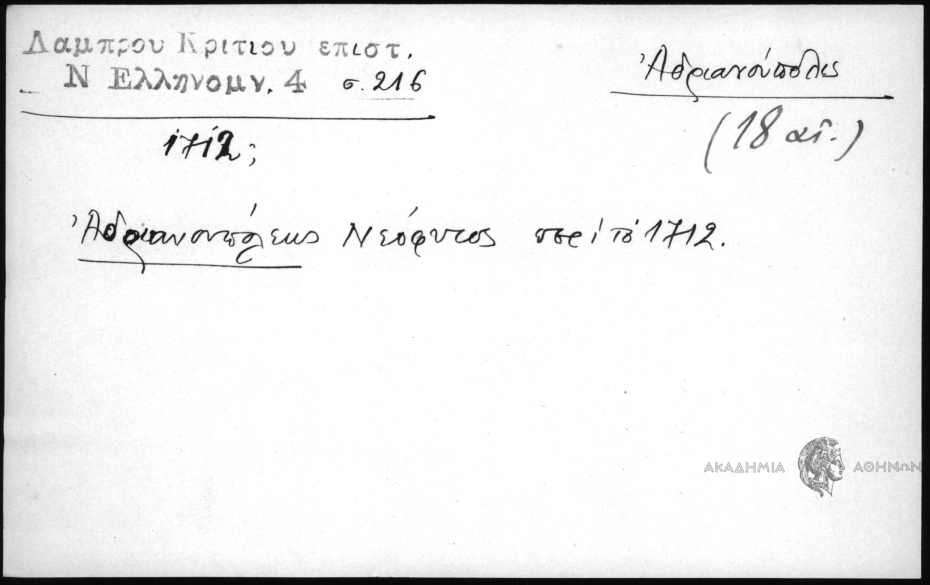 Λαμπρου Κριτιου επιστ.
Ν Ελληνομν. 4 σ. 216
Ἀδριανούπολις
1712;
(18 αἰ.)
Ἀδριανουπόλεως Νεόφυτος περὶ τὸ 1712.
ΑΚΑΔΗΜΙΑ ΑΘΗΝΩΝ